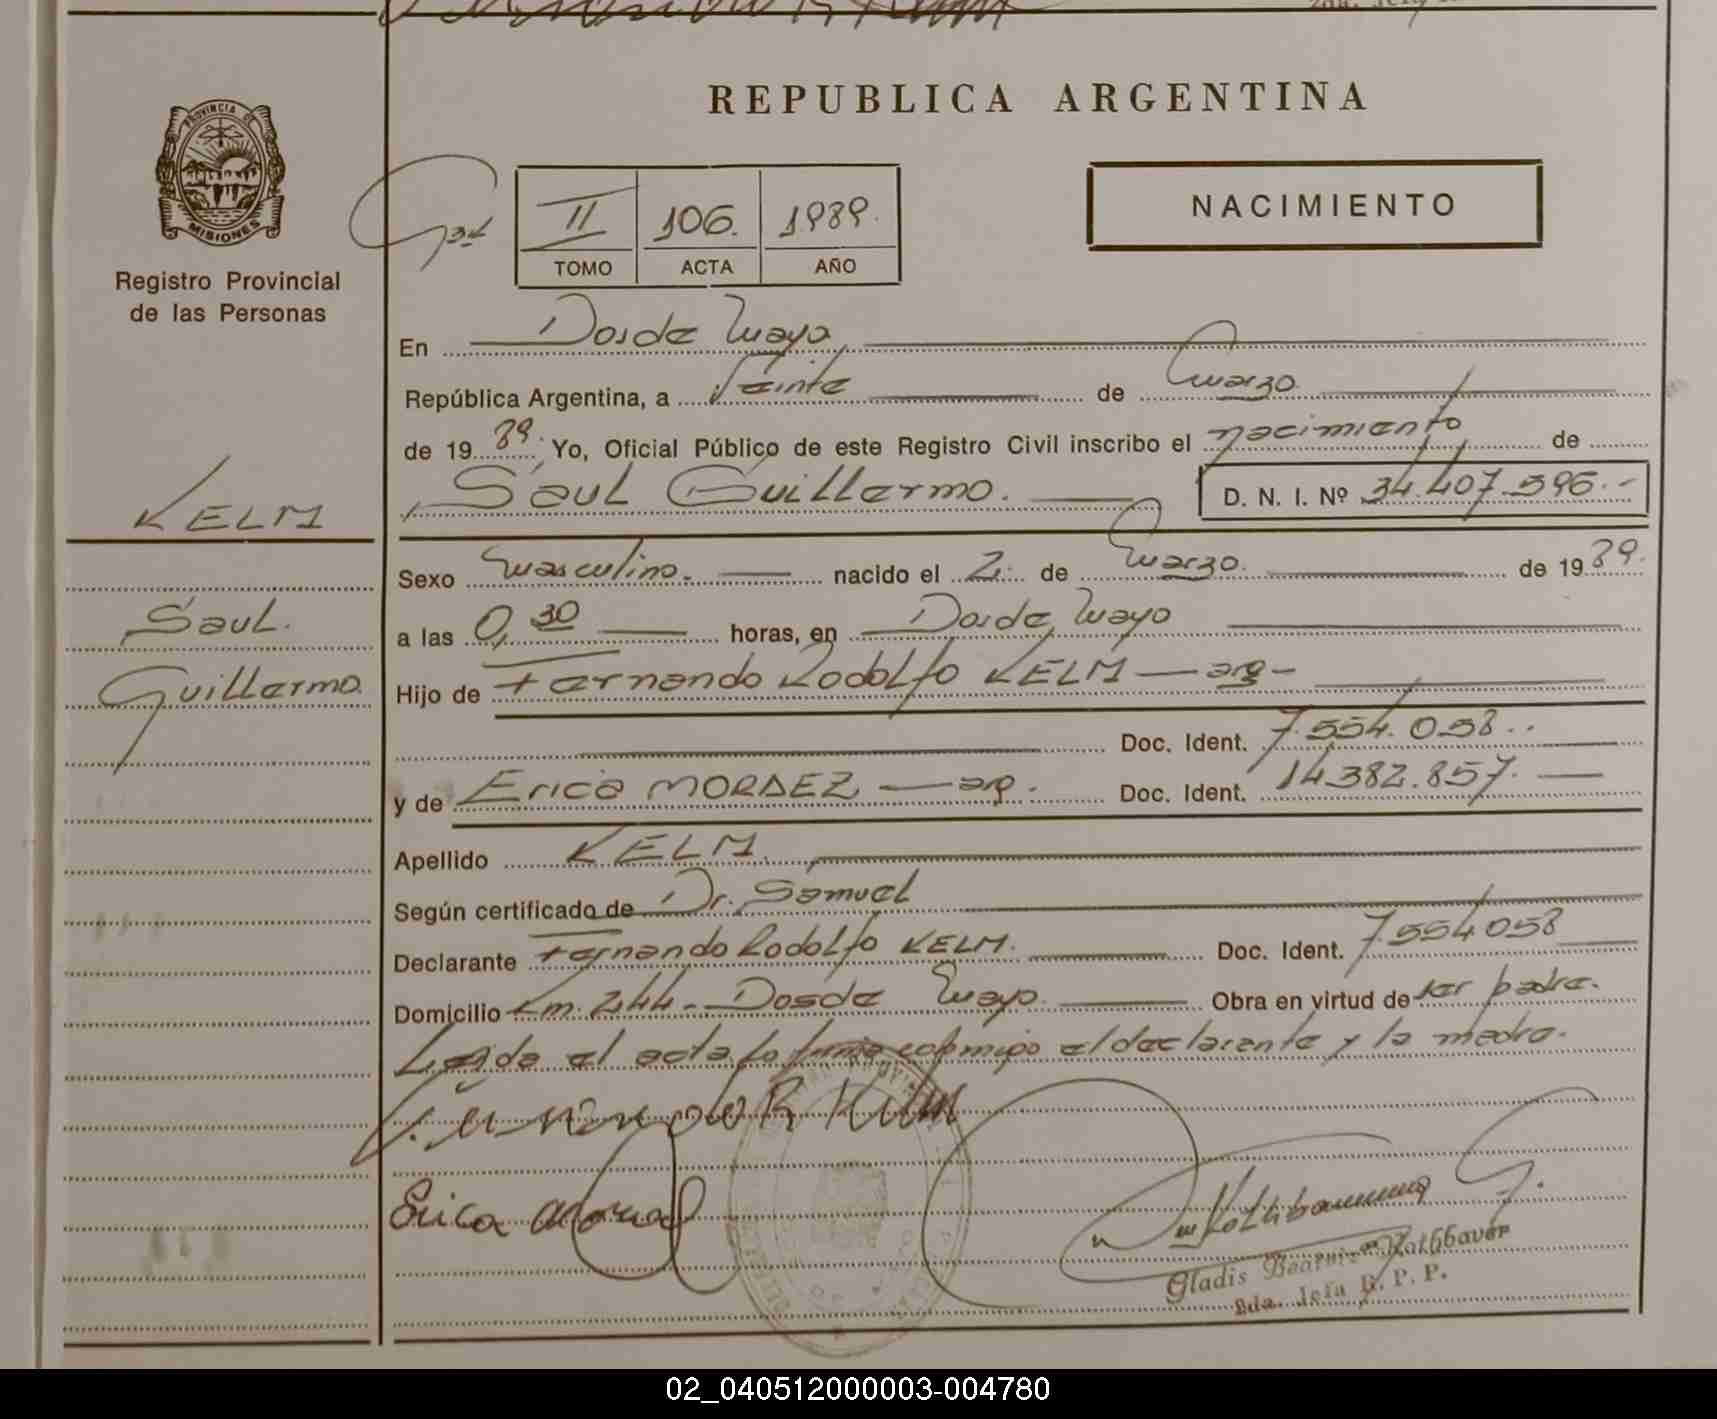 REPUBLICA ARGENTINA
PROVINCIA DE
MISIONES
Registro Provincial
de las Personas
II 106. 1989.
TOMO ACTA AÑO
NACIMIENTO
En Dos de Mayo
República Argentina, a Veinte de Marzo
de 19 89. Yo, Oficial Público de este Registro Civil inscribo el nacimiento de
Saul Guillermo. D. N. I. Nº 34.407.396.-
KELM
Saul.
Guillermo.
Sexo Masculino. nacido el 2. de Marzo. de 19 89.
a las 0,30 horas, en Dos de Mayo
Hijo de Fernando Rodolfo KELM — arg —
Doc. Ident. 7.554.058..
y de Erica MORAEZ — arg. Doc. Ident. 14.382.857.
Apellido KELM.
Según certificado de Dr. Samuel
Declarante Fernando Rodolfo KELM. Doc. Ident. 7.554058
Domicilio Km. 244 - Dos de Mayo. Obra en virtud de ser padre.
Leida el acta la firma conmigo el declarante y la madre.
Fernando R Kelm
Erica
Gladis Beatriz Rothbauer
2da. Jefa R. P. P.
02_040512000003-004780